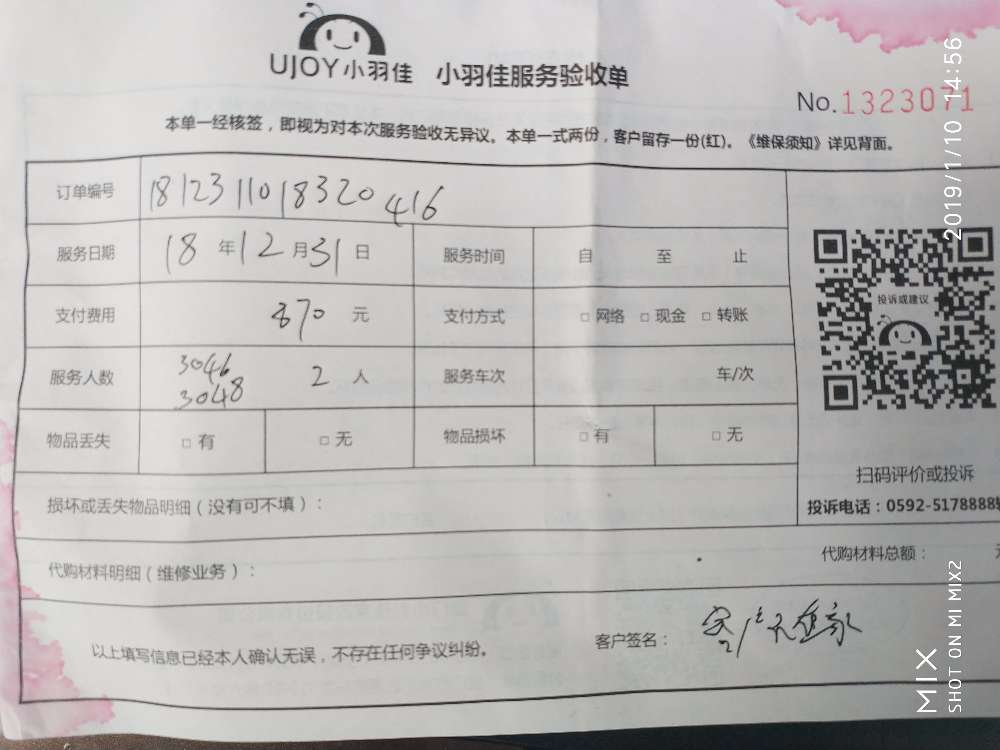 UJOY小羽佳 小羽佳服务验收单
No.1323071
本单一经核签，即视为对本次服务验收无异议。本单一式两份，客户留存一份(红)。《维保须知》详见背面。
订单编号 1812311018320416
服务日期 18年12月31日 服务时间 自 至 止
支付费用 870 元 支付方式 □网络 □现金 □转账
服务人数 3046 3048 2人 服务车次 车/次
物品丢失 □有 □无 物品损坏 □有 □无
投诉或建议
扫码评价或投诉
投诉电话：0592-5178888
损坏或丢失物品明细（没有可不填）：
代购材料明细（维修业务）：
代购材料总额：
以上填写信息已经本人确认无误，不存在任何争议纠纷。
客户签名： 客户不在家
2019/1/10 14:56
MIX
SHOT ON MI MIX2